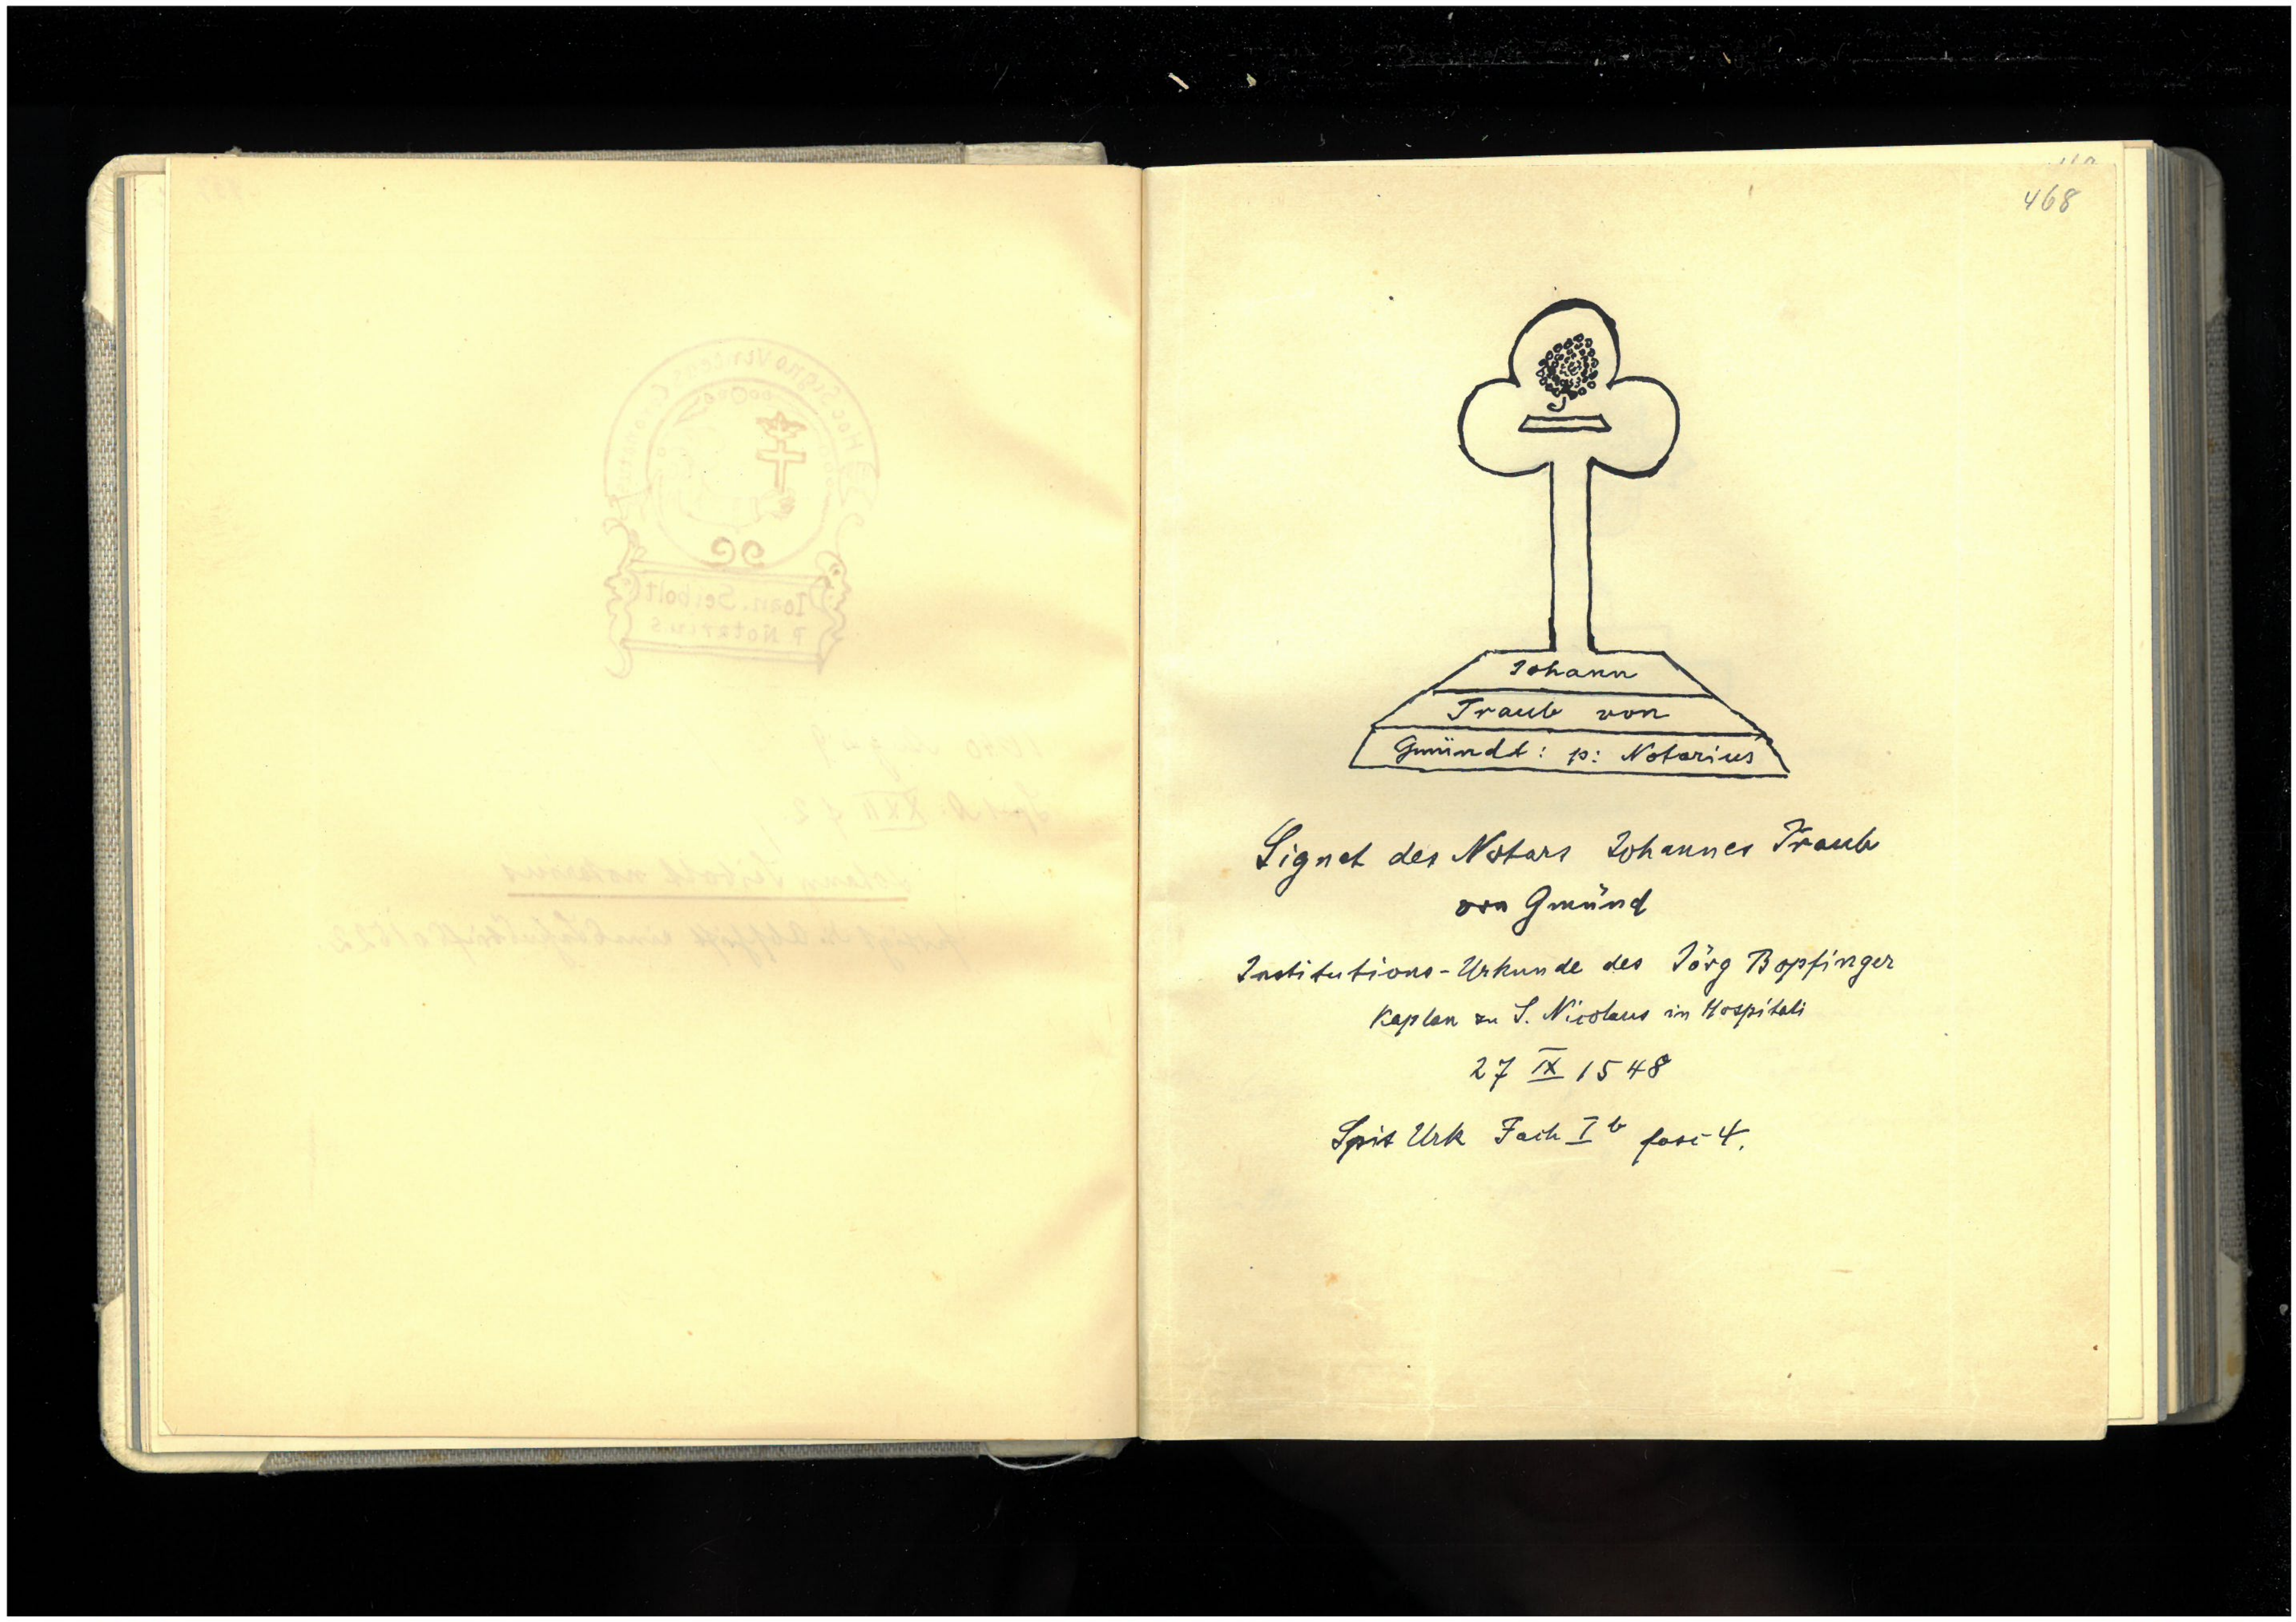 468
Johann
Traub von
Gmündt: p: Notarius
Signet des Notars Johannes Traub
von Gmünd
Institutions-Urkunde des Jörg Bopfinger
Kaplan zu S. Nicolaus in Hospitali
27 IX 1548
Spit Urk Fach I b fasc 4.
Joan. Seibolt
P. Notarius